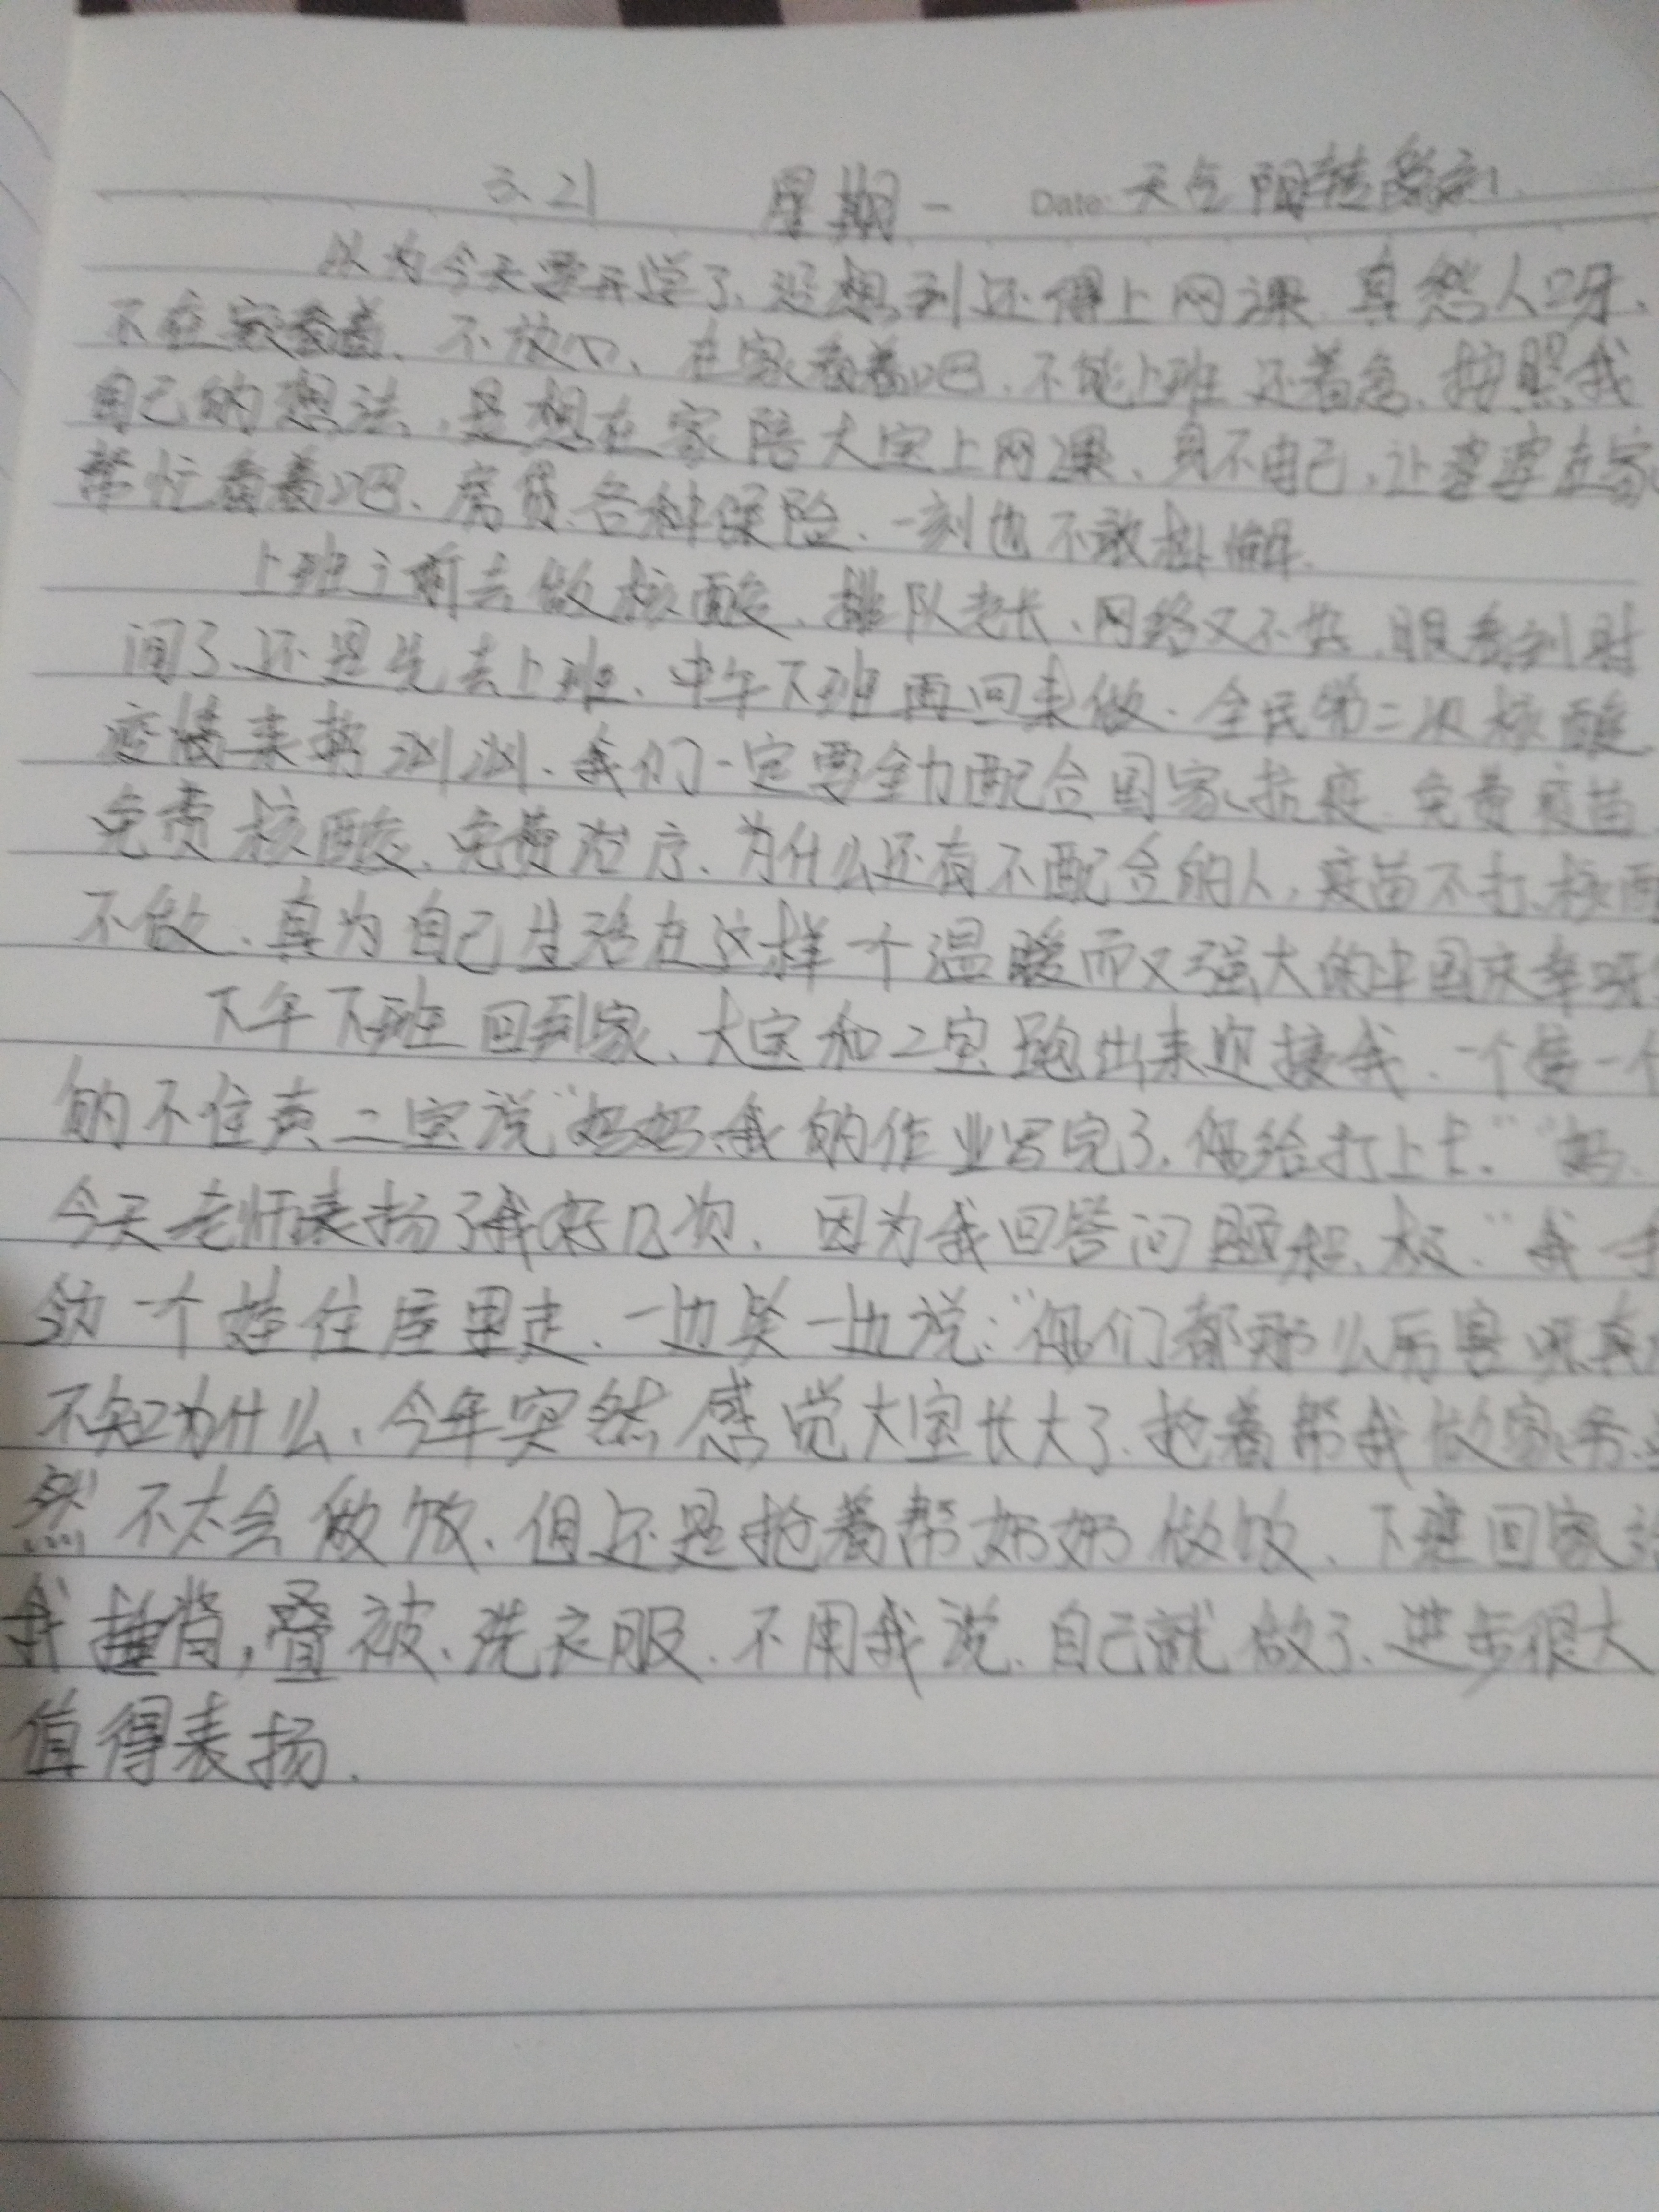 3.21 星期一 Date: 天气 阴转
以为今天要开学了、没想到还得上网课、真愁人呀、
不在家看着、不放心、在家看着吧、不能上班还着急、按照我
自己的想法、是想在家陪大宝上网课、身不由己、让婆婆在家
帮忙看着吧、房贷、各种保险、一刻也不敢松懈.
上班之前去做核酸、排队老长、网络又不好、眼看到时
间了、还是先去上班、中午下班再回来做、全民第二次核酸
疫情来势汹汹、我们一定要全力配合国家抗疫、免费疫苗、
免费核酸、免费治疗、为什么还有不配合的人，疫苗不打、核酸
不做、真为自己生活在这样一个温暖而又强大的中国庆幸呀
下午下班回到家、大宝和二宝跑出来迎接我、一个接一个
的不住声 二宝说“妈妈、我的作业写完了、你给打上卡。”“妈、
今天老师表扬了我好几次、因为我回答问题积极.”我一手
领一个娃往屋里走、一边笑一边说：“你们都那么厉害呀真
不知为什么、今年突然感觉大宝长大了、抢着帮我做家务、虽
然不太会做饭、但还是抢着帮奶奶做饭、下班回家给
我捶背，叠被、洗衣服、不用我说、自己就做了、进步很大
值得表扬.